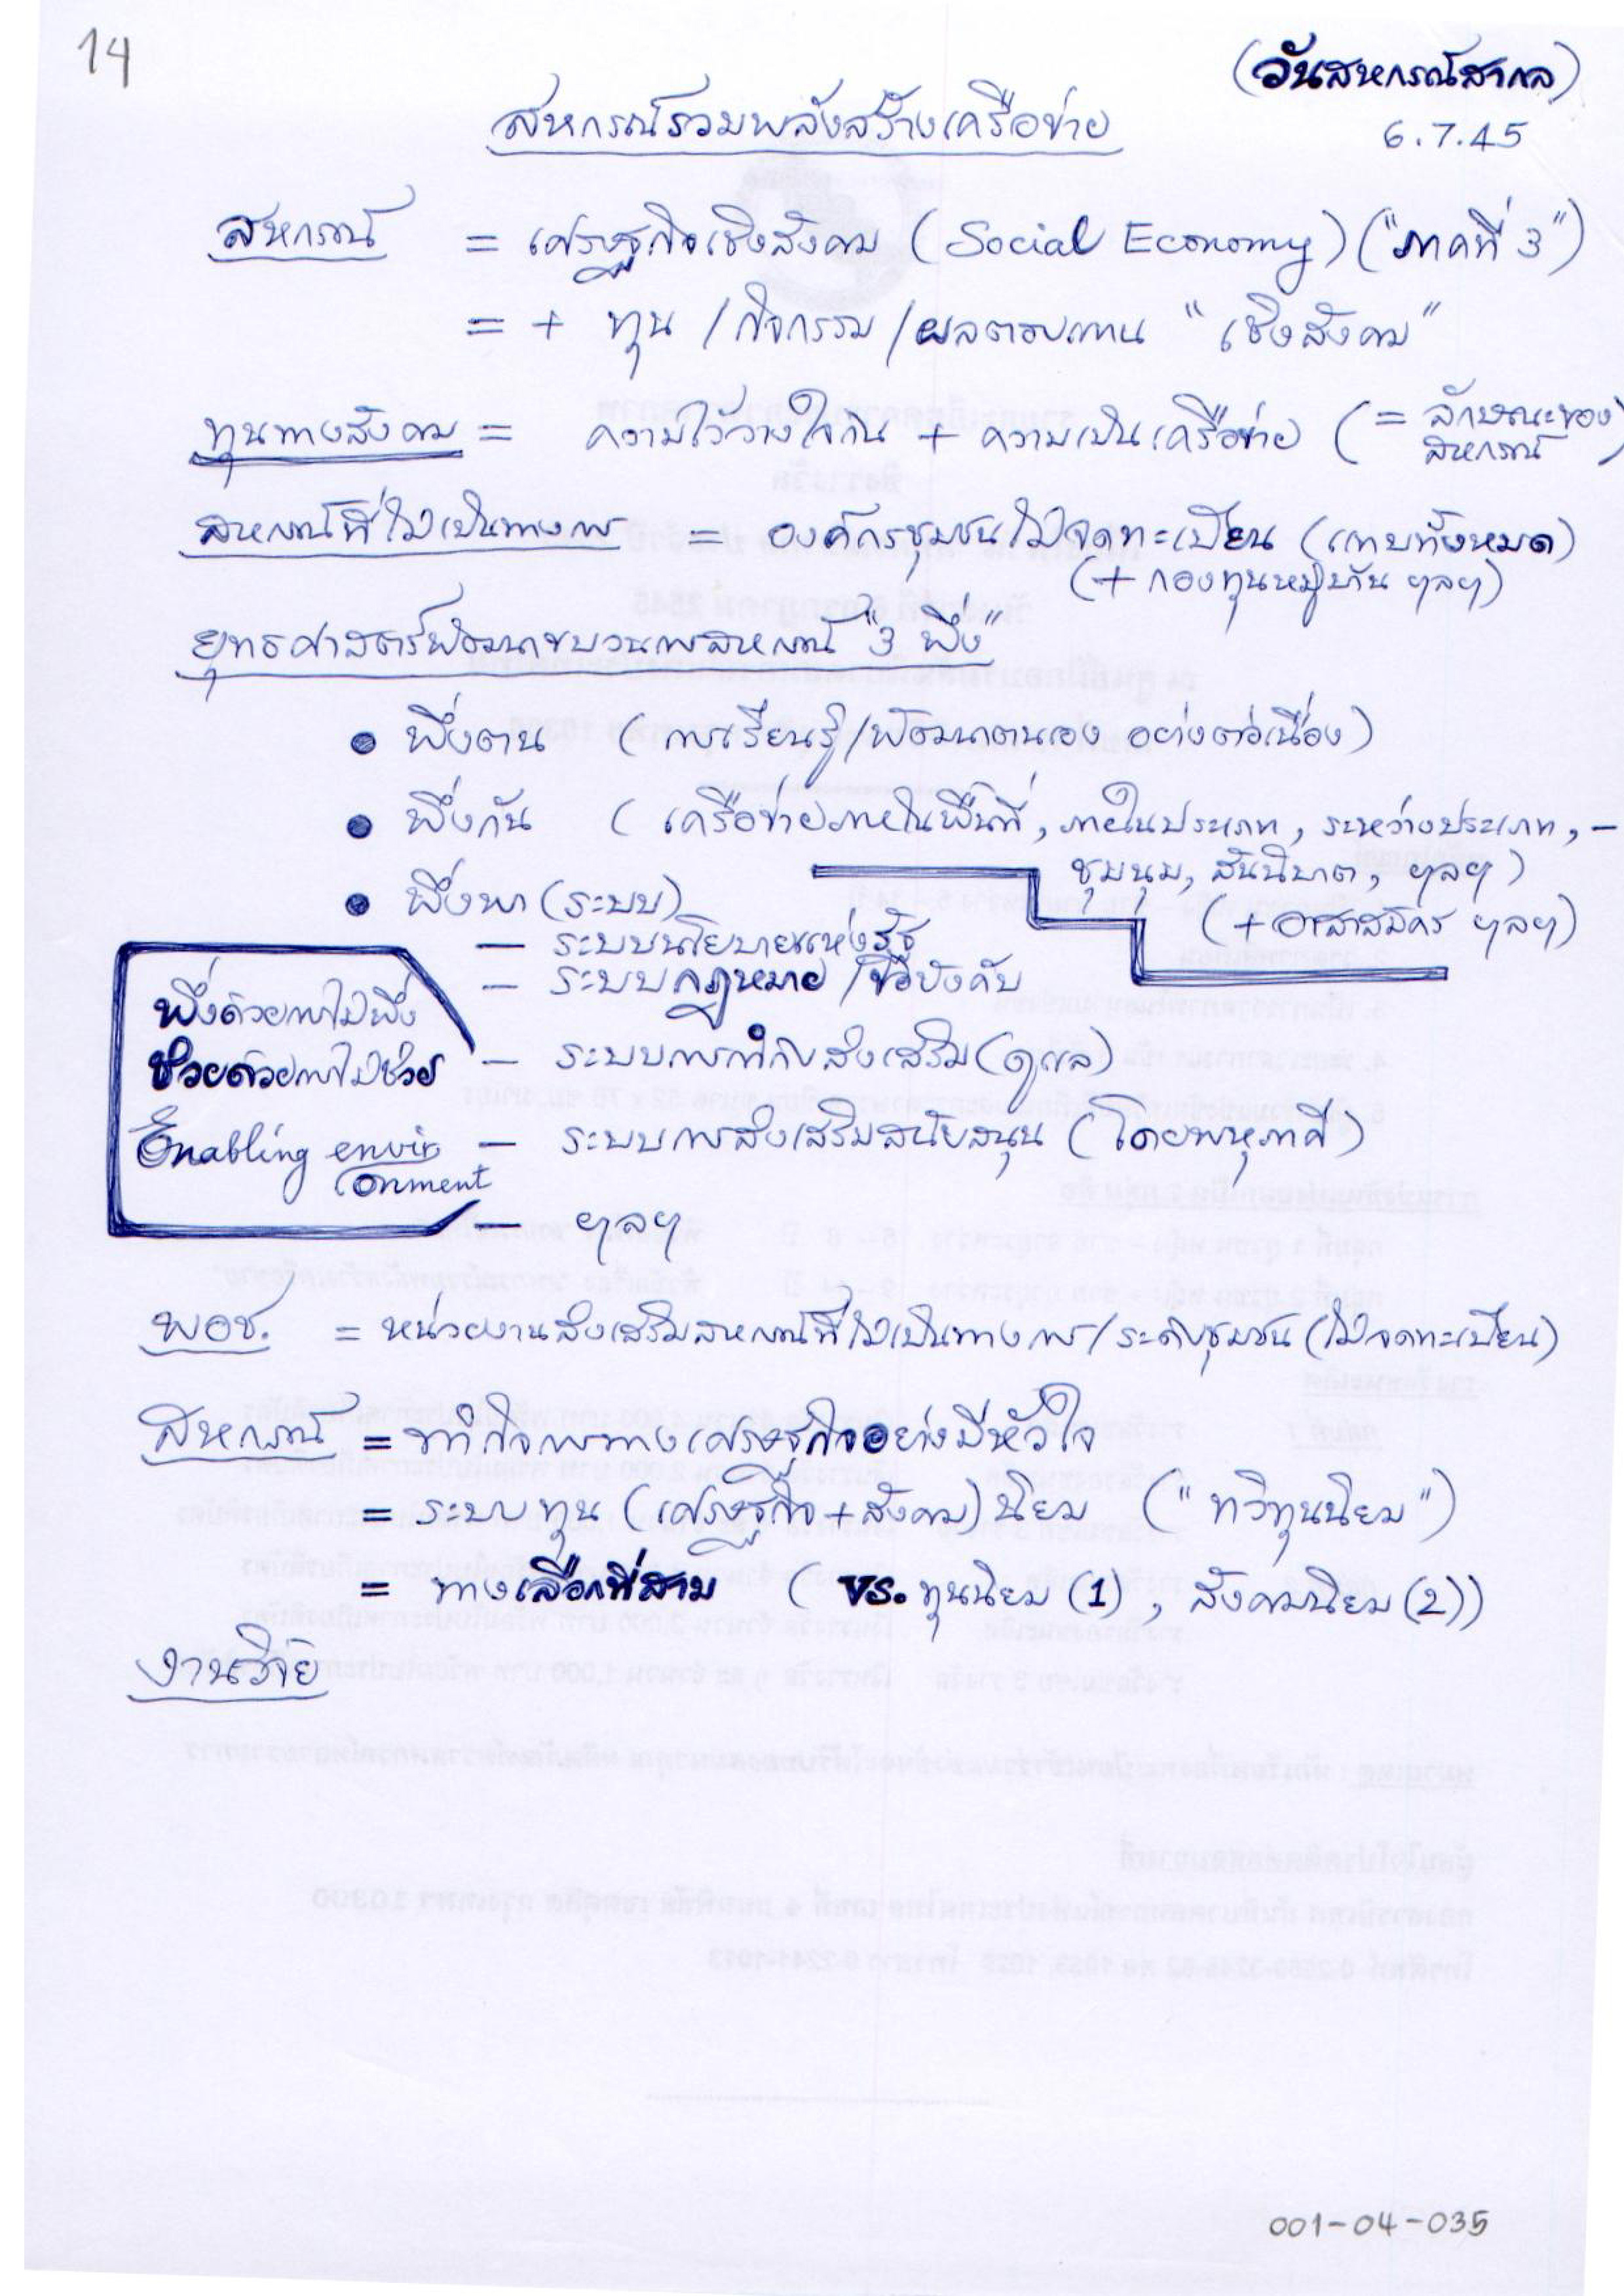 14
(วันสหกรณ์สากล)
สหกรณ์รวมพลังสร้างเครือข่าย
6.7.45
สหกรณ์ = เศรษฐกิจเชิงสังคม (Social Economy) ("ภาคที่ 3")
= + ทุน / กิจกรรม / ผลตอบแทน "เชิงสังคม"
ทุนทางสังคม = ความไว้วางใจกัน + ความเป็นเครือข่าย (= ลักษณะของ
สหกรณ์)
สหกรณ์ที่ไม่เป็นทางการ = องค์กรชุมชนไม่จดทะเบียน (แทบทั้งหมด)
(+ กองทุนหมู่บ้าน ฯลฯ)
ยุทธศาสตร์พัฒนาขบวนการสหกรณ์ "3 พึ่ง"
• พึ่งตน (การเรียนรู้/พัฒนาตนเอง อย่างต่อเนื่อง)
• พึ่งกัน (เครือข่ายภายในพื้นที่, ภายในประเภท, ระหว่างประเภท, –
ชุมนุม, สันนิบาต, ฯลฯ)
(+ อาสาสมัคร ฯลฯ)
• พึ่งพา (ระบบ)
– ระบบนโยบายแห่งรัฐ
– ระบบกฎหมาย / ข้อบังคับ
– ระบบการกำกับส่งเสริม (ดูแล)
– ระบบการส่งเสริมสนับสนุน (โดยพหุภาคี)
– ฯลฯ
พึ่งด้วยการไม่พึ่ง
ช่วยด้วยการไม่ช่วย
Enabling envir
onment
พอช. = หน่วยงานส่งเสริมสหกรณ์ที่ไม่เป็นทางการ / ระดับชุมชน (ไม่จดทะเบียน)
สหกรณ์ = ทำกิจการทางเศรษฐกิจอย่างมีหัวใจ
= ระบบทุน (เศรษฐกิจ+สังคม) นิยม ("ทวิทุนนิยม")
= ทางเลือกที่สาม (vs. ทุนนิยม (1), สังคมนิยม (2))
งานวิจัย
001-04-035